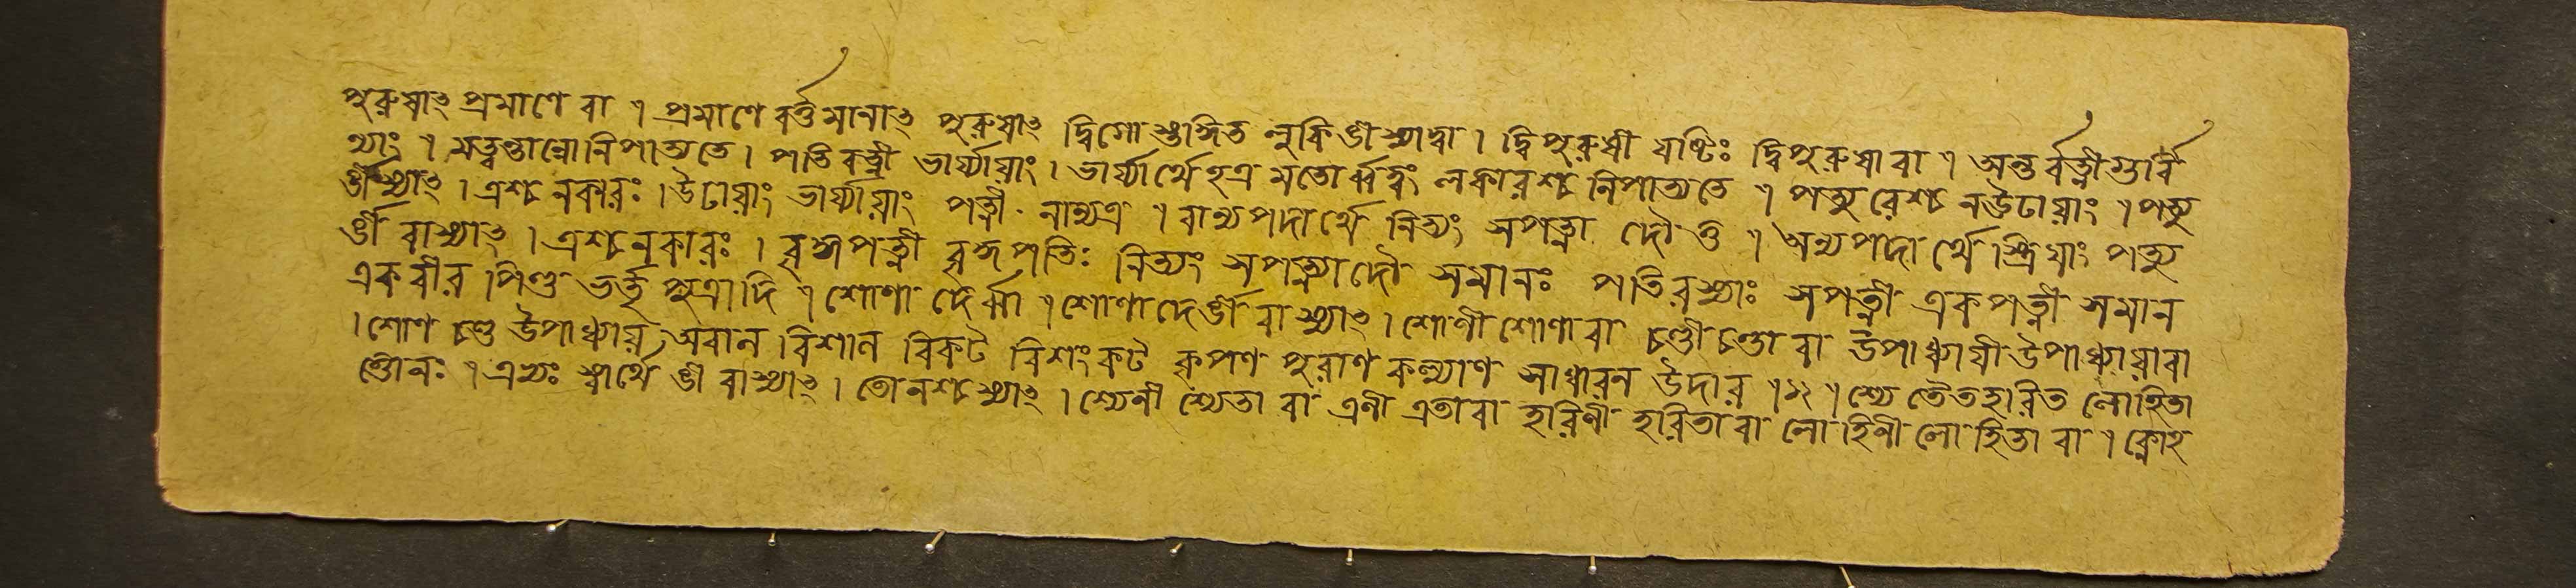 পুরুষাৎ প্রমাণে বা । প্রমাণে বর্ত্তমানাৎ পুরুষাৎ দ্বিগোস্তদ্ধিত লুকি ঙী স্যাদ্বা । দ্বিপুরুষী যষ্টিঃ দ্বিপুরুষা বা । অন্তর্ব্বত্নী গুর্ব্বি
ণ্যাং । মত্বন্তান্নো নিপাত্যতে । পতিবত্নী ভার্য্যায়াং । ভার্য্যার্থেঽত্র মতোর্ব্বত্বং নকারশ্চ নিপাত্যতে । পত্যুরেশ্চ ন ঊঢায়াং । পত্যু
র্ঙী স্যাৎ । এশ্চ নকারঃ । ঊঢায়াং ভার্য্যায়াং পত্নী নান্যত্র । বান্যপদার্থে নিত্যং সপত্ন্যাদৌ তু । অন্যপদার্থে স্ত্রিয়াং পত্যু
র্ঙী বা স্যাৎ । এশ্চ নকারঃ । বৃদ্ধপত্নী বৃদ্ধপতিঃ নিত্যং সপত্ন্যাদৌ সমানঃ পতিরস্যাঃ সপত্নী একপত্নী সমান
এক বীর পিণ্ড ভর্ত্তৃ পুত্রাদি । শোণাদের্ব্বা । শোণাদের্ঙী বা স্যাৎ । শোণী শোণা বা চণ্ডী চণ্ডা বা উপাধ্যায়ী উপাধ্যায়া বা
। শোণ চণ্ড উপাধ্যায় অবাল বিশাল বিকট বিশংকট কৃপণ পুরাণ কল্যাণ সাধারন উদার ।১২। শ্যেতৈতহারিত লোহিতা
ত্তোনঃ । এভ্যঃ স্বার্থে ঙী বা স্যাৎ । তো নশ্চ স্যাৎ । শ্যেনী শ্যেতা বা এনী এতা বা হারিণী হরিতা বা লোহিনী লোহিতা বা । ক্নোঽ